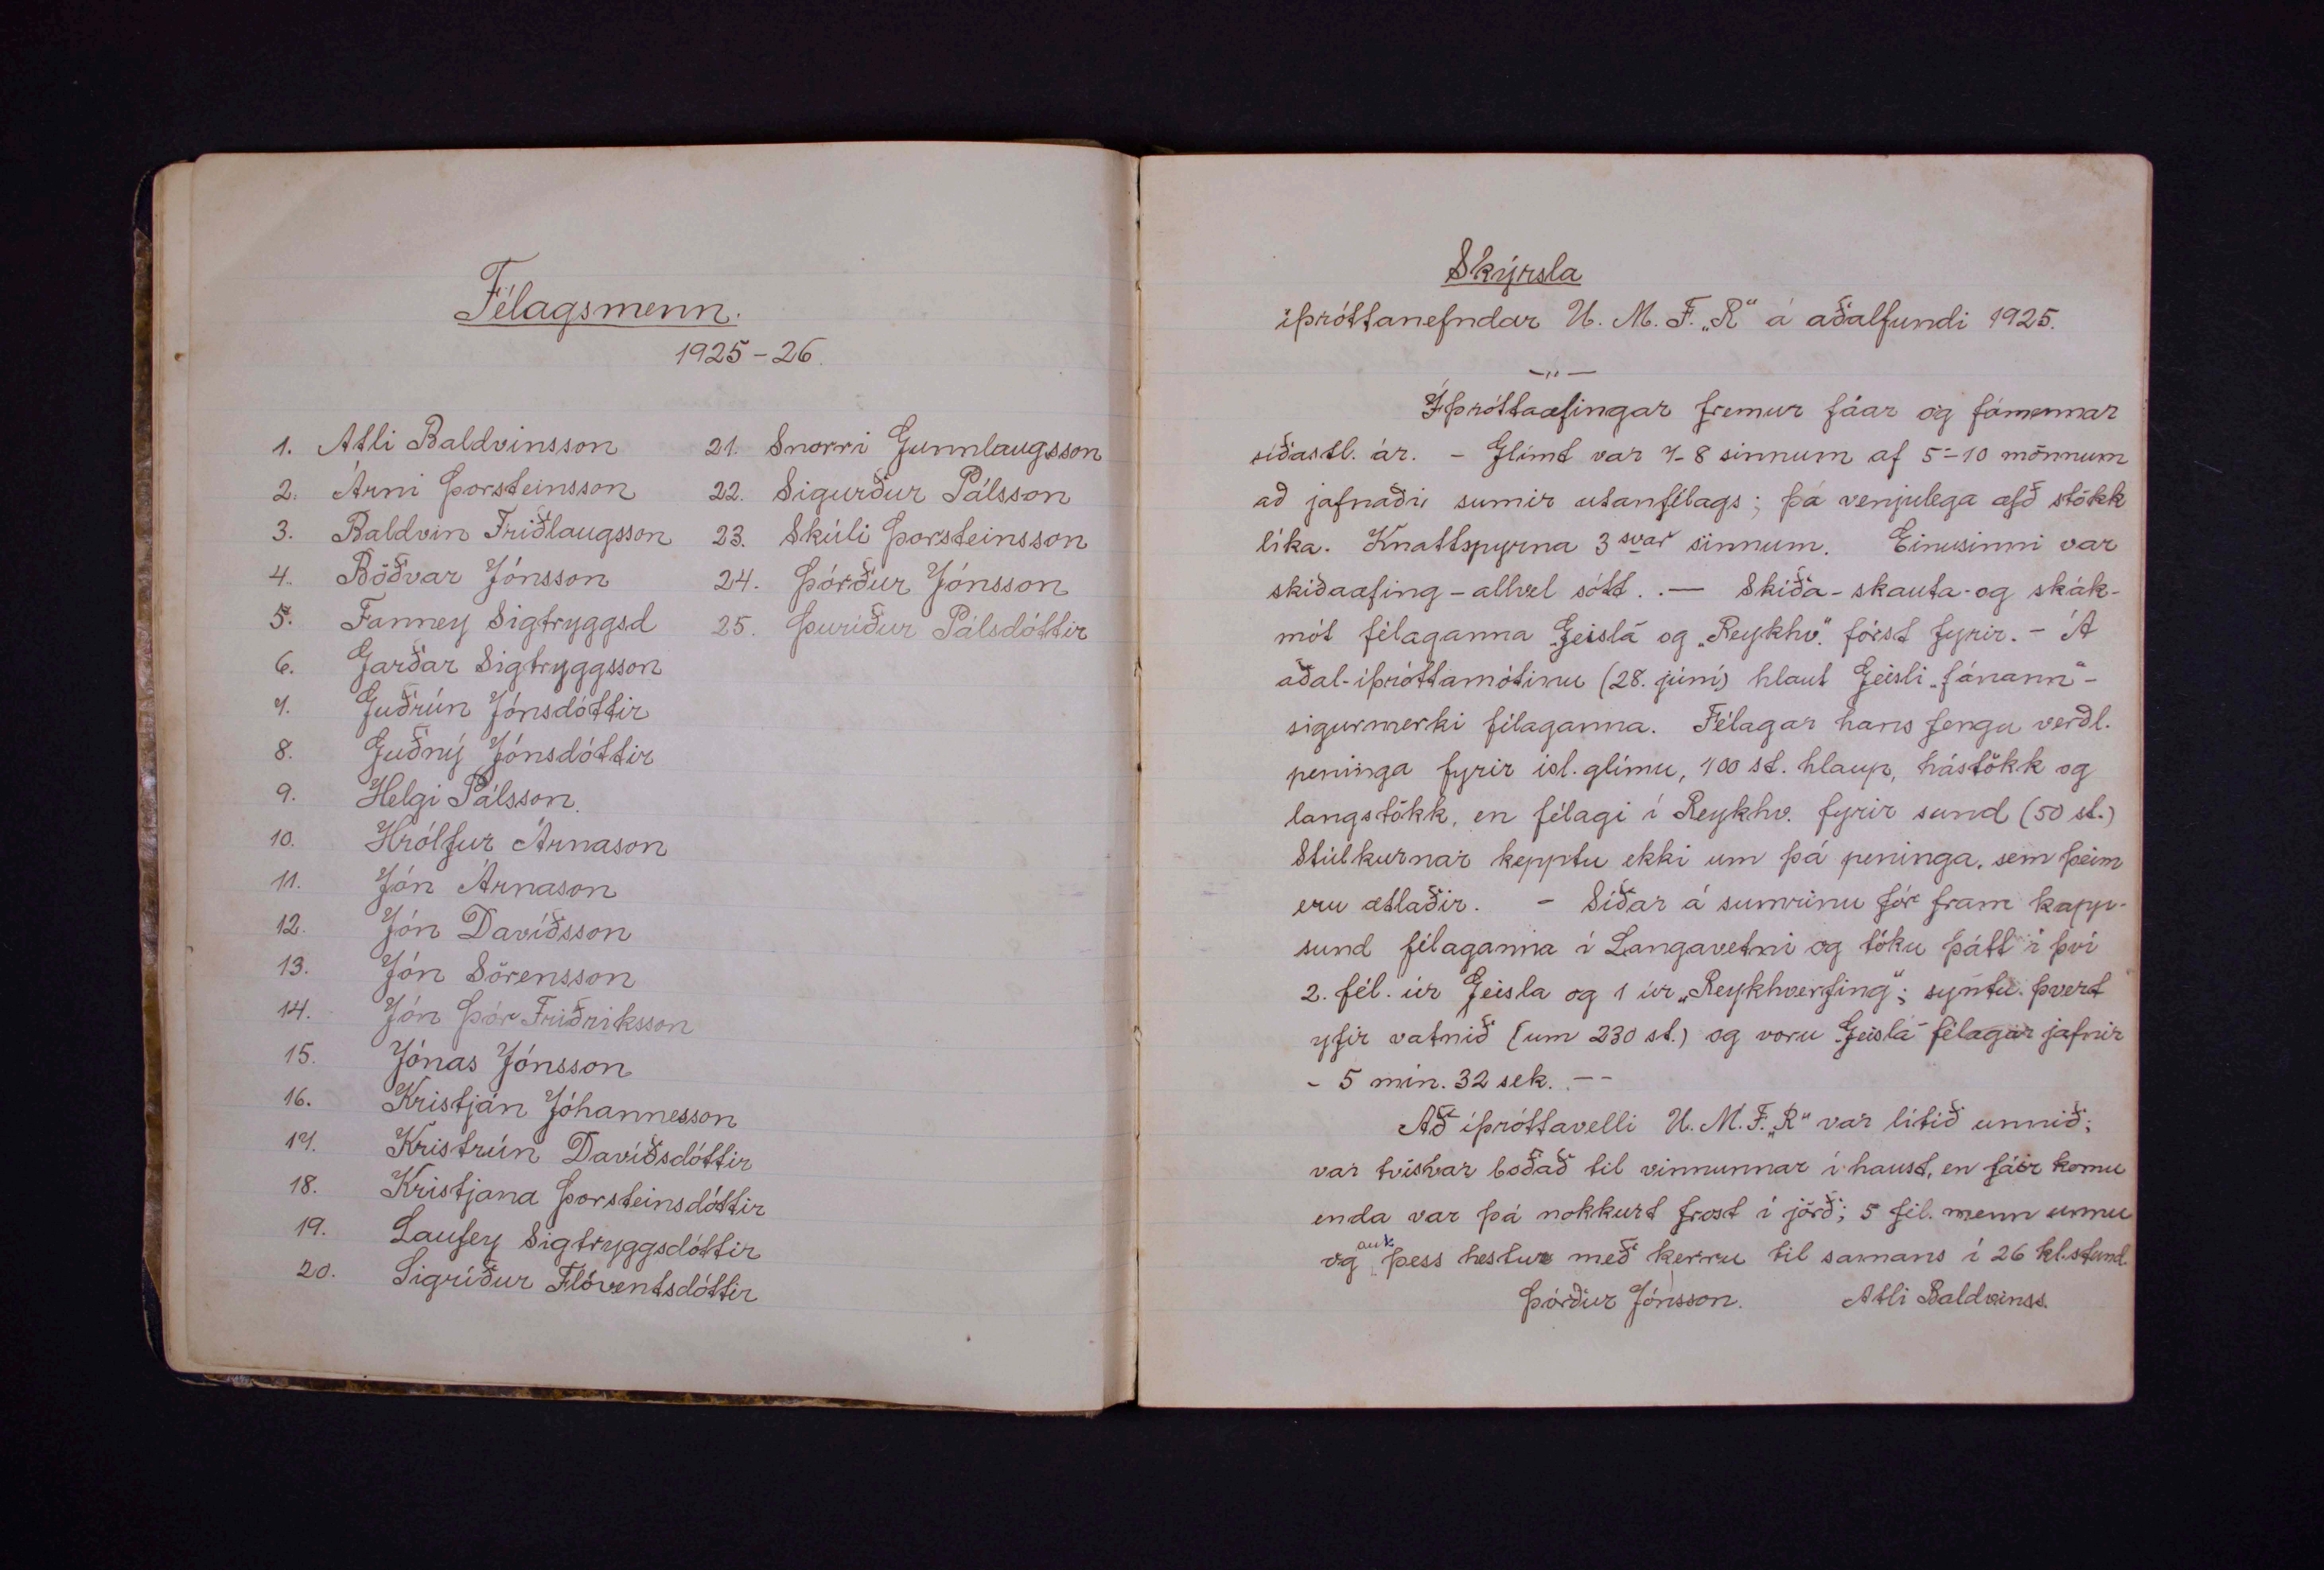 Félagsmenn.
1925-26.
1. Atli Baldvinsson
2. Árni Þorsteinsson
3. Baldvin Friðlaugsson
4. Böðvar Jónsson
5. Fanney Sigtryggsd
6. Garðar Sigtryggsson
7. Guðrún Jónsdóttir
8. Guðný Jónsdóttir
9. Helgi Pálsson.
10. Hrólfur Árnason
11. Jón Árnason
12. Jón Davíðsson
13. Jón Sörensson
14. Jón Þór Friðriksson
15. Jónas Jónsson
16. Kristján Jóhannesson
17. Kristrún Davíðsdóttir
18. Kristjana Þorsteinsdóttir
19. Laufey Sigtryggsdóttir
20. Sigríður Flóventsdóttir
21. Snorri Gunnlaugsson
22. Sigurður Pálsson
23. Skúli Þorsteinsson
24. Þórður Jónsson
25. Þuríður Pálsdóttir
Skýrsla
íþróttanefndar U. M. F. „R" á aðalfundi 1925.
-"-
Íþróttaæfingar fremur fáar og fámennar
síðastl. ár. - Glímt var 7-8 sinnum af 5-10 mönnum
að jafnaði, sumir utanfélags; þá venjulega æfð stökk
líka. Knattspyrna 3svar sinnum. Einusinni var
skíðaæfing - allvel sótt. . — Skíða- skauta- og skák-
mót félaganna „Geisla" og „Reykhv." fórst fyrir. - Á
aðal-íþróttamótinu (28. júní) hlaut Geisli „fánann" -
sigurmerki félaganna. Félagar hans fengu verðl.
peninga fyrir ísl. glímu, 100 st. hlaup, hástökk og
langstökk, en félagi í Reykhv. fyrir sund (50 st.)
Stúlkurnar kepptu ekki um þá peninga, sem þeim
eru ætlaðir. - Síðar á sumrinu fór fram kapp-
sund félaganna í Langavatni og tóku þátt í því
2. fél. úr Geisla og 1 úr „Reykhverfing"; syntu þvert
yfir vatnið (um 230 st.) og voru „Geisla" félagar jafnir
- 5 mín. 32 sek. --
Að íþróttavelli U. M. F. „R" var lítið unnið;
var tvisvar boðað til vinnunnar í haust, en fáir komu
enda var þá nokkurt frost í jörð; 5 fél. menn unnu
og auk þess hestur með kerru til samans í 26 kl.stund.
Þórður Jónsson. Atli Baldvinss.